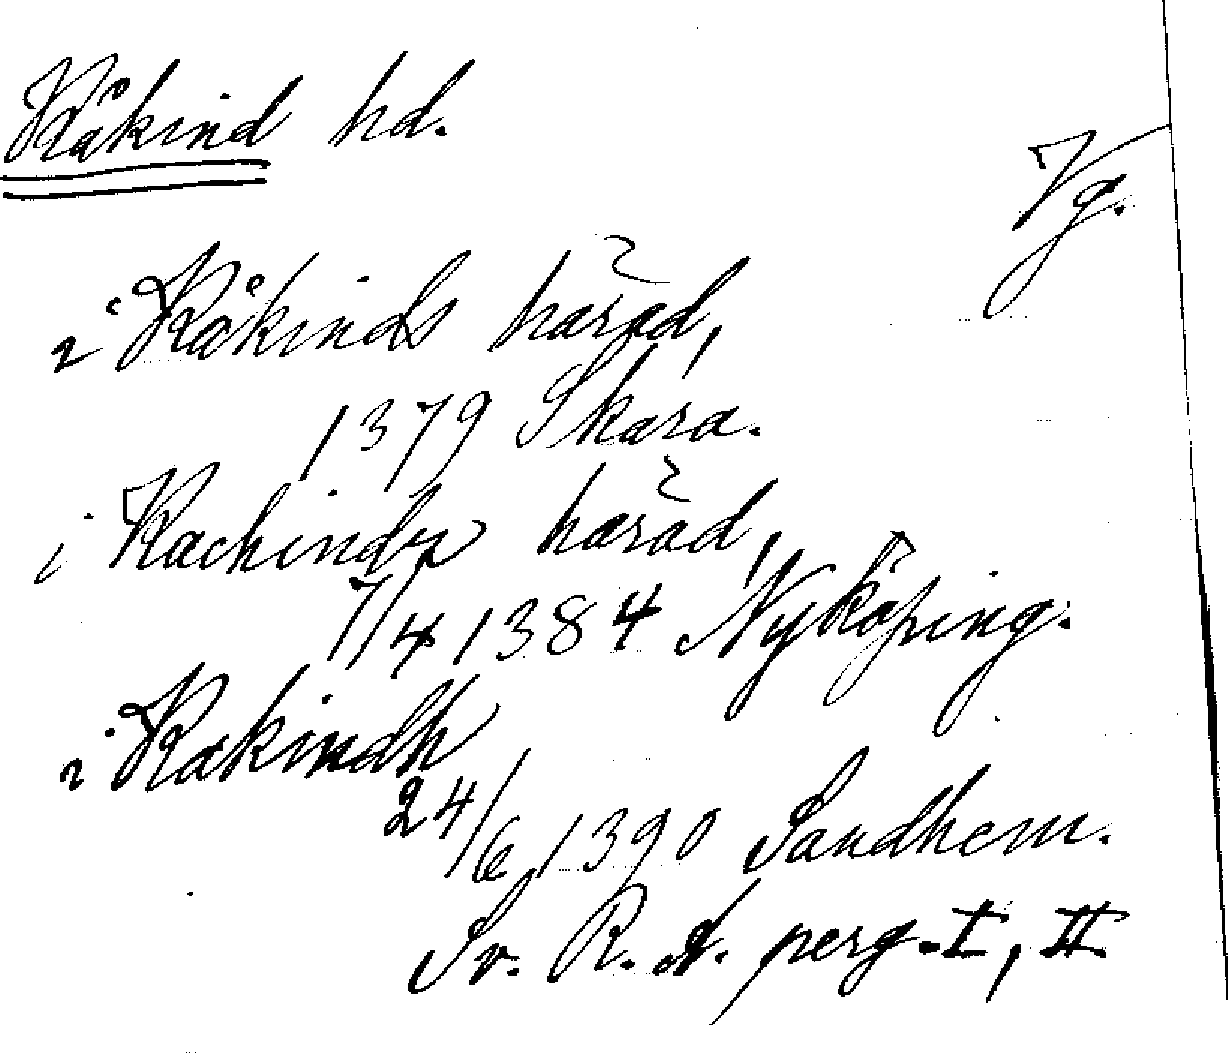 Kåkind hd.
Vg.
i Kåkinds harad,
1379 Skara.
i Kachinda harad,
7/4 1384 Nyköping.
i Kakindh
24/6 1390 Sandhem.
Sv. R. A. perg. I, II